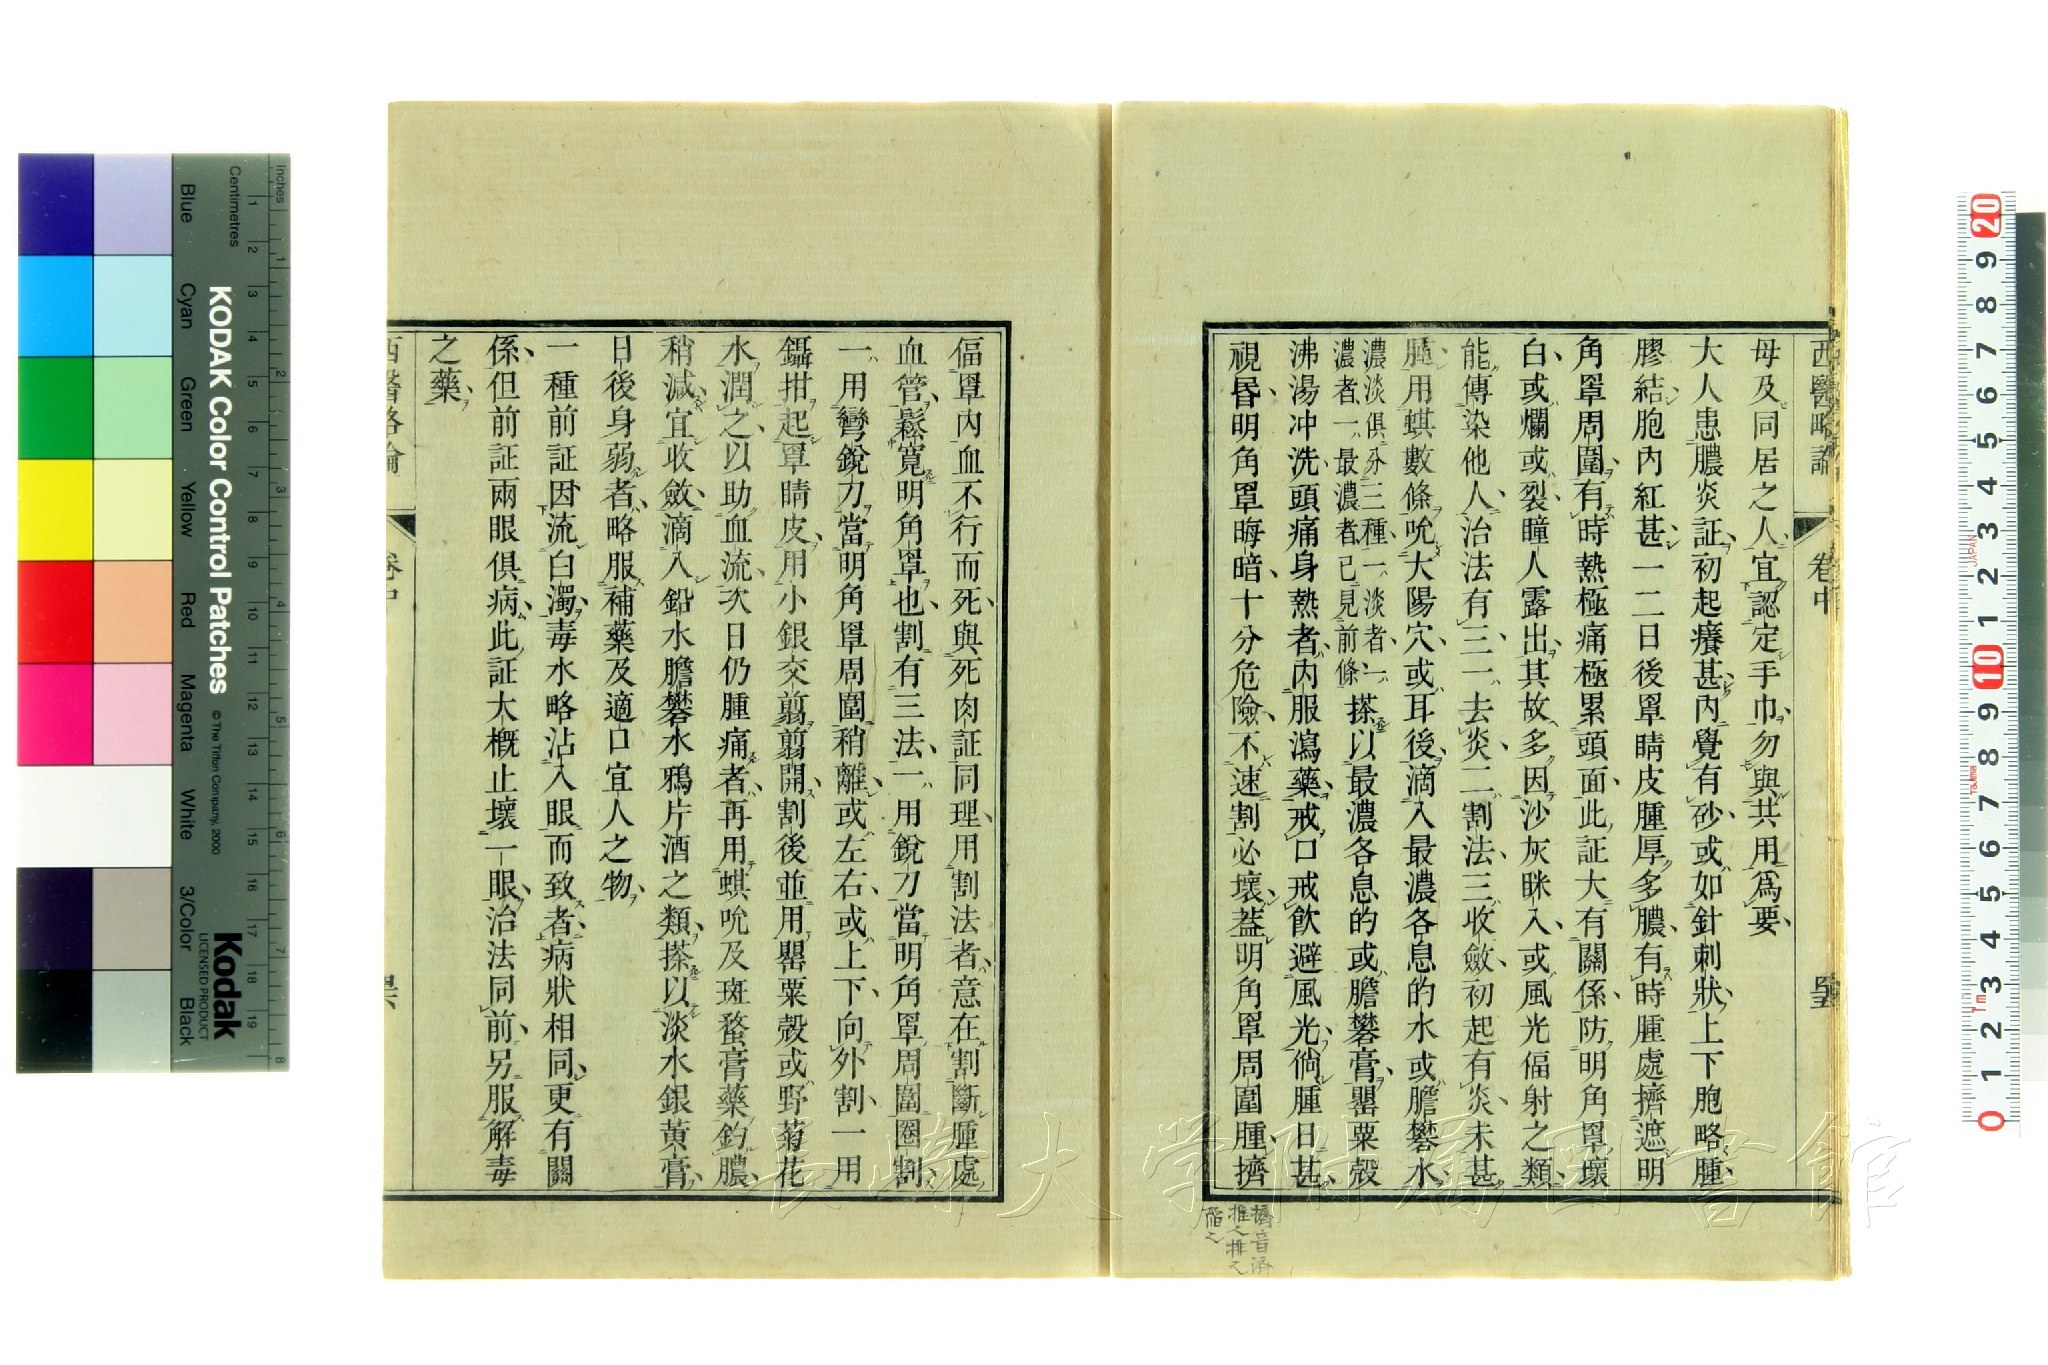 西醫略論 卷中
母及同居之人宜認定手巾勿與共用爲要
大人患膿炎証初起癢甚內覺有砂或如針刺狀上下胞略腫
膠結胞內紅甚一二日後罩睛皮腫厚多膿有時腫處擠遮明
角罩周圍有時熱極痛極累頭面此証大有關係防明角罩壞
白或爛或裂瞳人露出其故多因沙灰眯入或風光偪射之類
能傳染他人治法有三一去炎二割法三收斂初起有炎未甚
腫用蜞數條吮大陽穴或耳後滴入最濃各息的水或膽礬水
濃淡俱分三種一淡者一
濃者一最濃者已見前條
搽以最濃各息的或膽礬膏罌粟殼
沸湯冲洗頭痛身熱者內服瀉藥戒口戒飲避風光倘腫日甚
視昏明角罩晦暗十分危險不速割必壞蓋明角罩周圍腫擠
擠音濟
推之排之
偪罩內血不行而死與死肉証同理用割法者意在割斷腫處
血管鬆寬明角罩也割有三法一用銳刀當明角罩周圍圈割
一用彎銳刀當明角罩周圍稍離或左右或上下向外割一用
鑷拑起罩睛皮用小銀交剪剪開割後並用罌粟殼或野菊花
水潤之以助血流次日仍腫痛者再用蜞吮及斑蝥膏藥釣膿
稍減宜收斂滴入鉛水膽礬水鴉片酒之類搽以淡水銀黃膏
日後身弱者略服補藥及適口宜人之物
一種前証因流白濁毒水略沾入眼而致者病狀相同更有關
係但前証兩眼俱病此証大概止壞一眼治法同前另服解毒
之藥
西醫略論 卷中
KODAK Color Control Patches
© The Tiffen Company, 2000
Kodak
LICENSED PRODUCT
Inches
Centimetres
Blue Cyan Green Yellow Red Magenta White 3/Color Black
長崎大学附属図書館